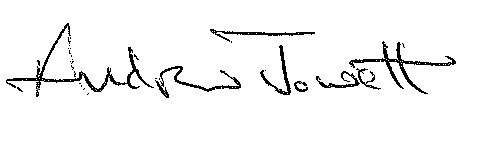 Andrew Jowett